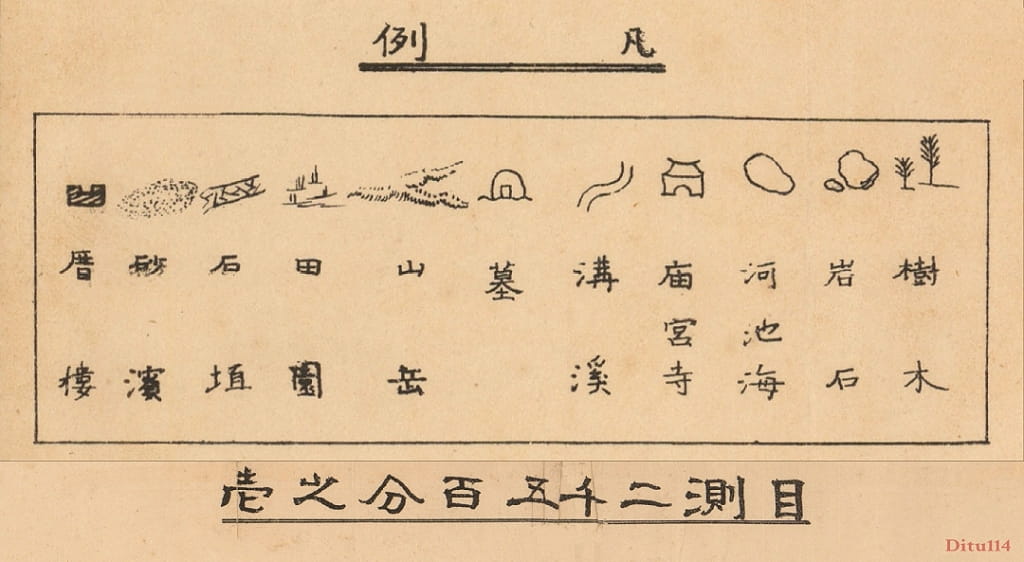 凡例
樹木
岩石
河池海
庙宮寺
溝溪
墓
山岳
田園
石垣
砂濱
厝樓
目測二千五百分之壱
Ditu114